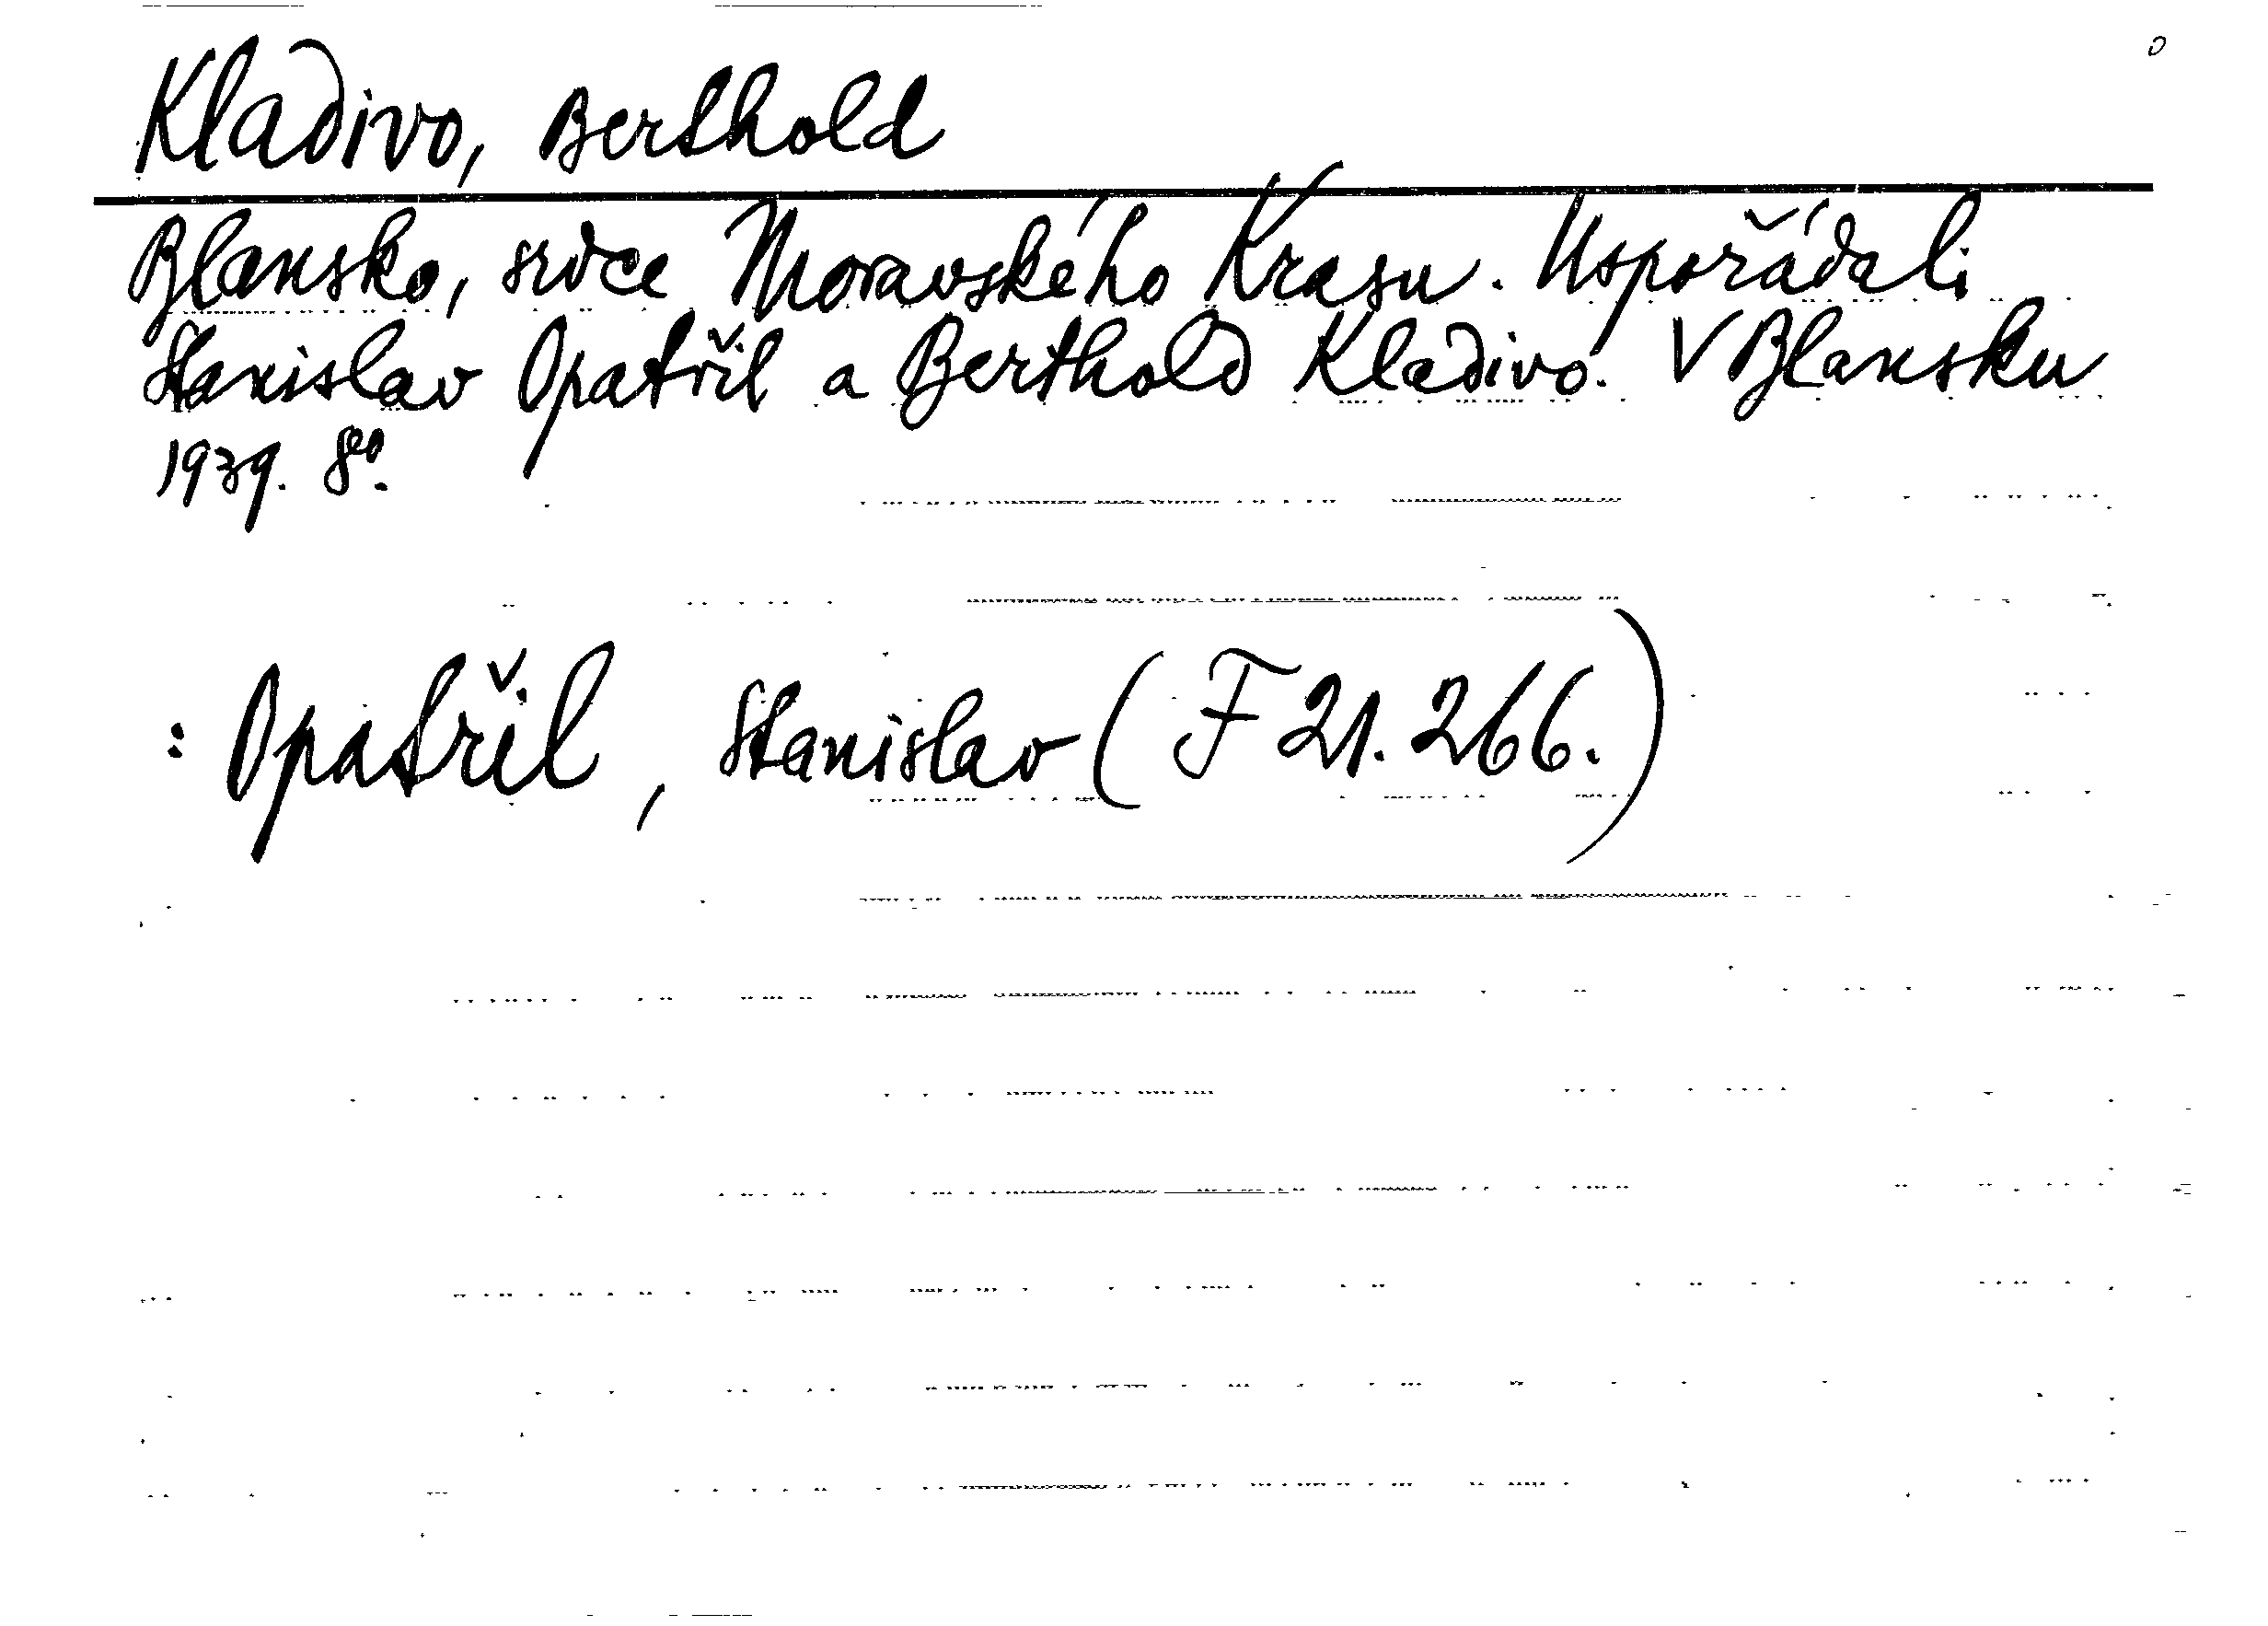 Kladivo, Berthold
Blansko, srdce Moravského Krasu. Uspořádali
Stanislav Opatřil a Berthold Kladivo. V Blansku
1939. 8°.
: Opatřil, Stanislav (F 21.266.)